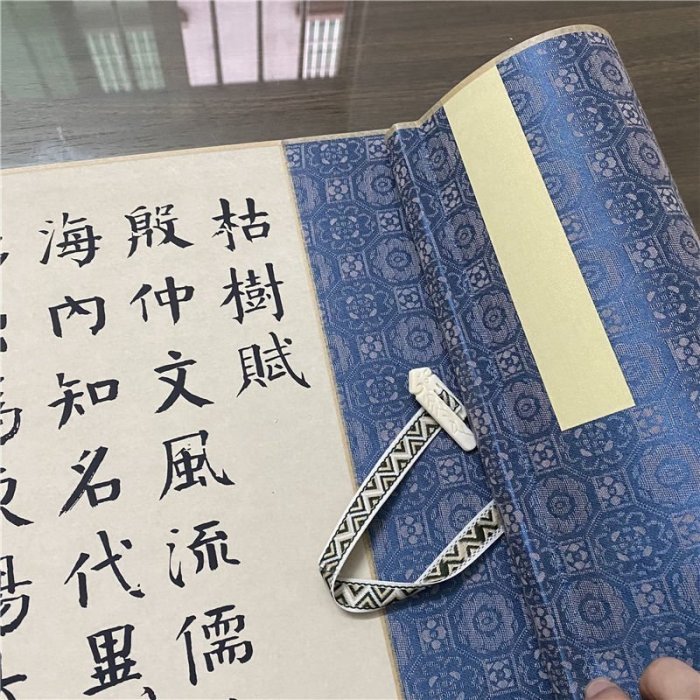 枯樹賦
殷仲文風流儒
海內知名代異